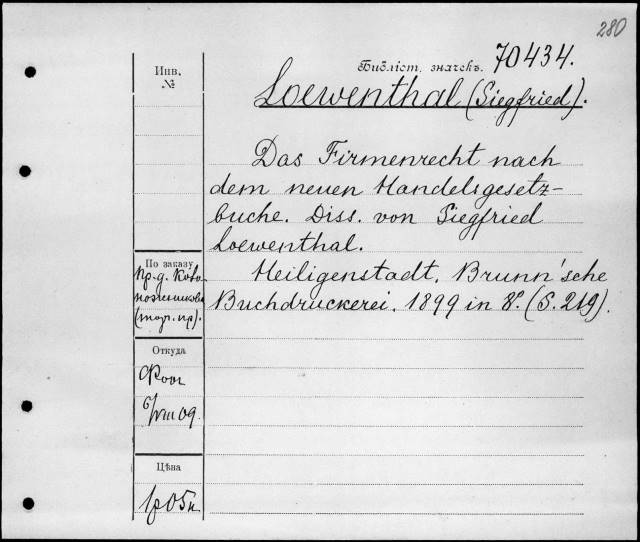 280
Библіот. значекъ. 70434.
Инв. №
Loewenthal (Siegfried).
Das Firmenrecht nach
dem neuen Handelsgesetz-
buche. Diss. von Siegfried
Loewenthal.
Heiligenstadt, Brunn'sche
Buchdruckerei. 1899 in 8°. (S. 219).
По заказу
Пр. д.
(торг. пр).
Откуда
6/VIII 09.
Цѣна
1р 05к